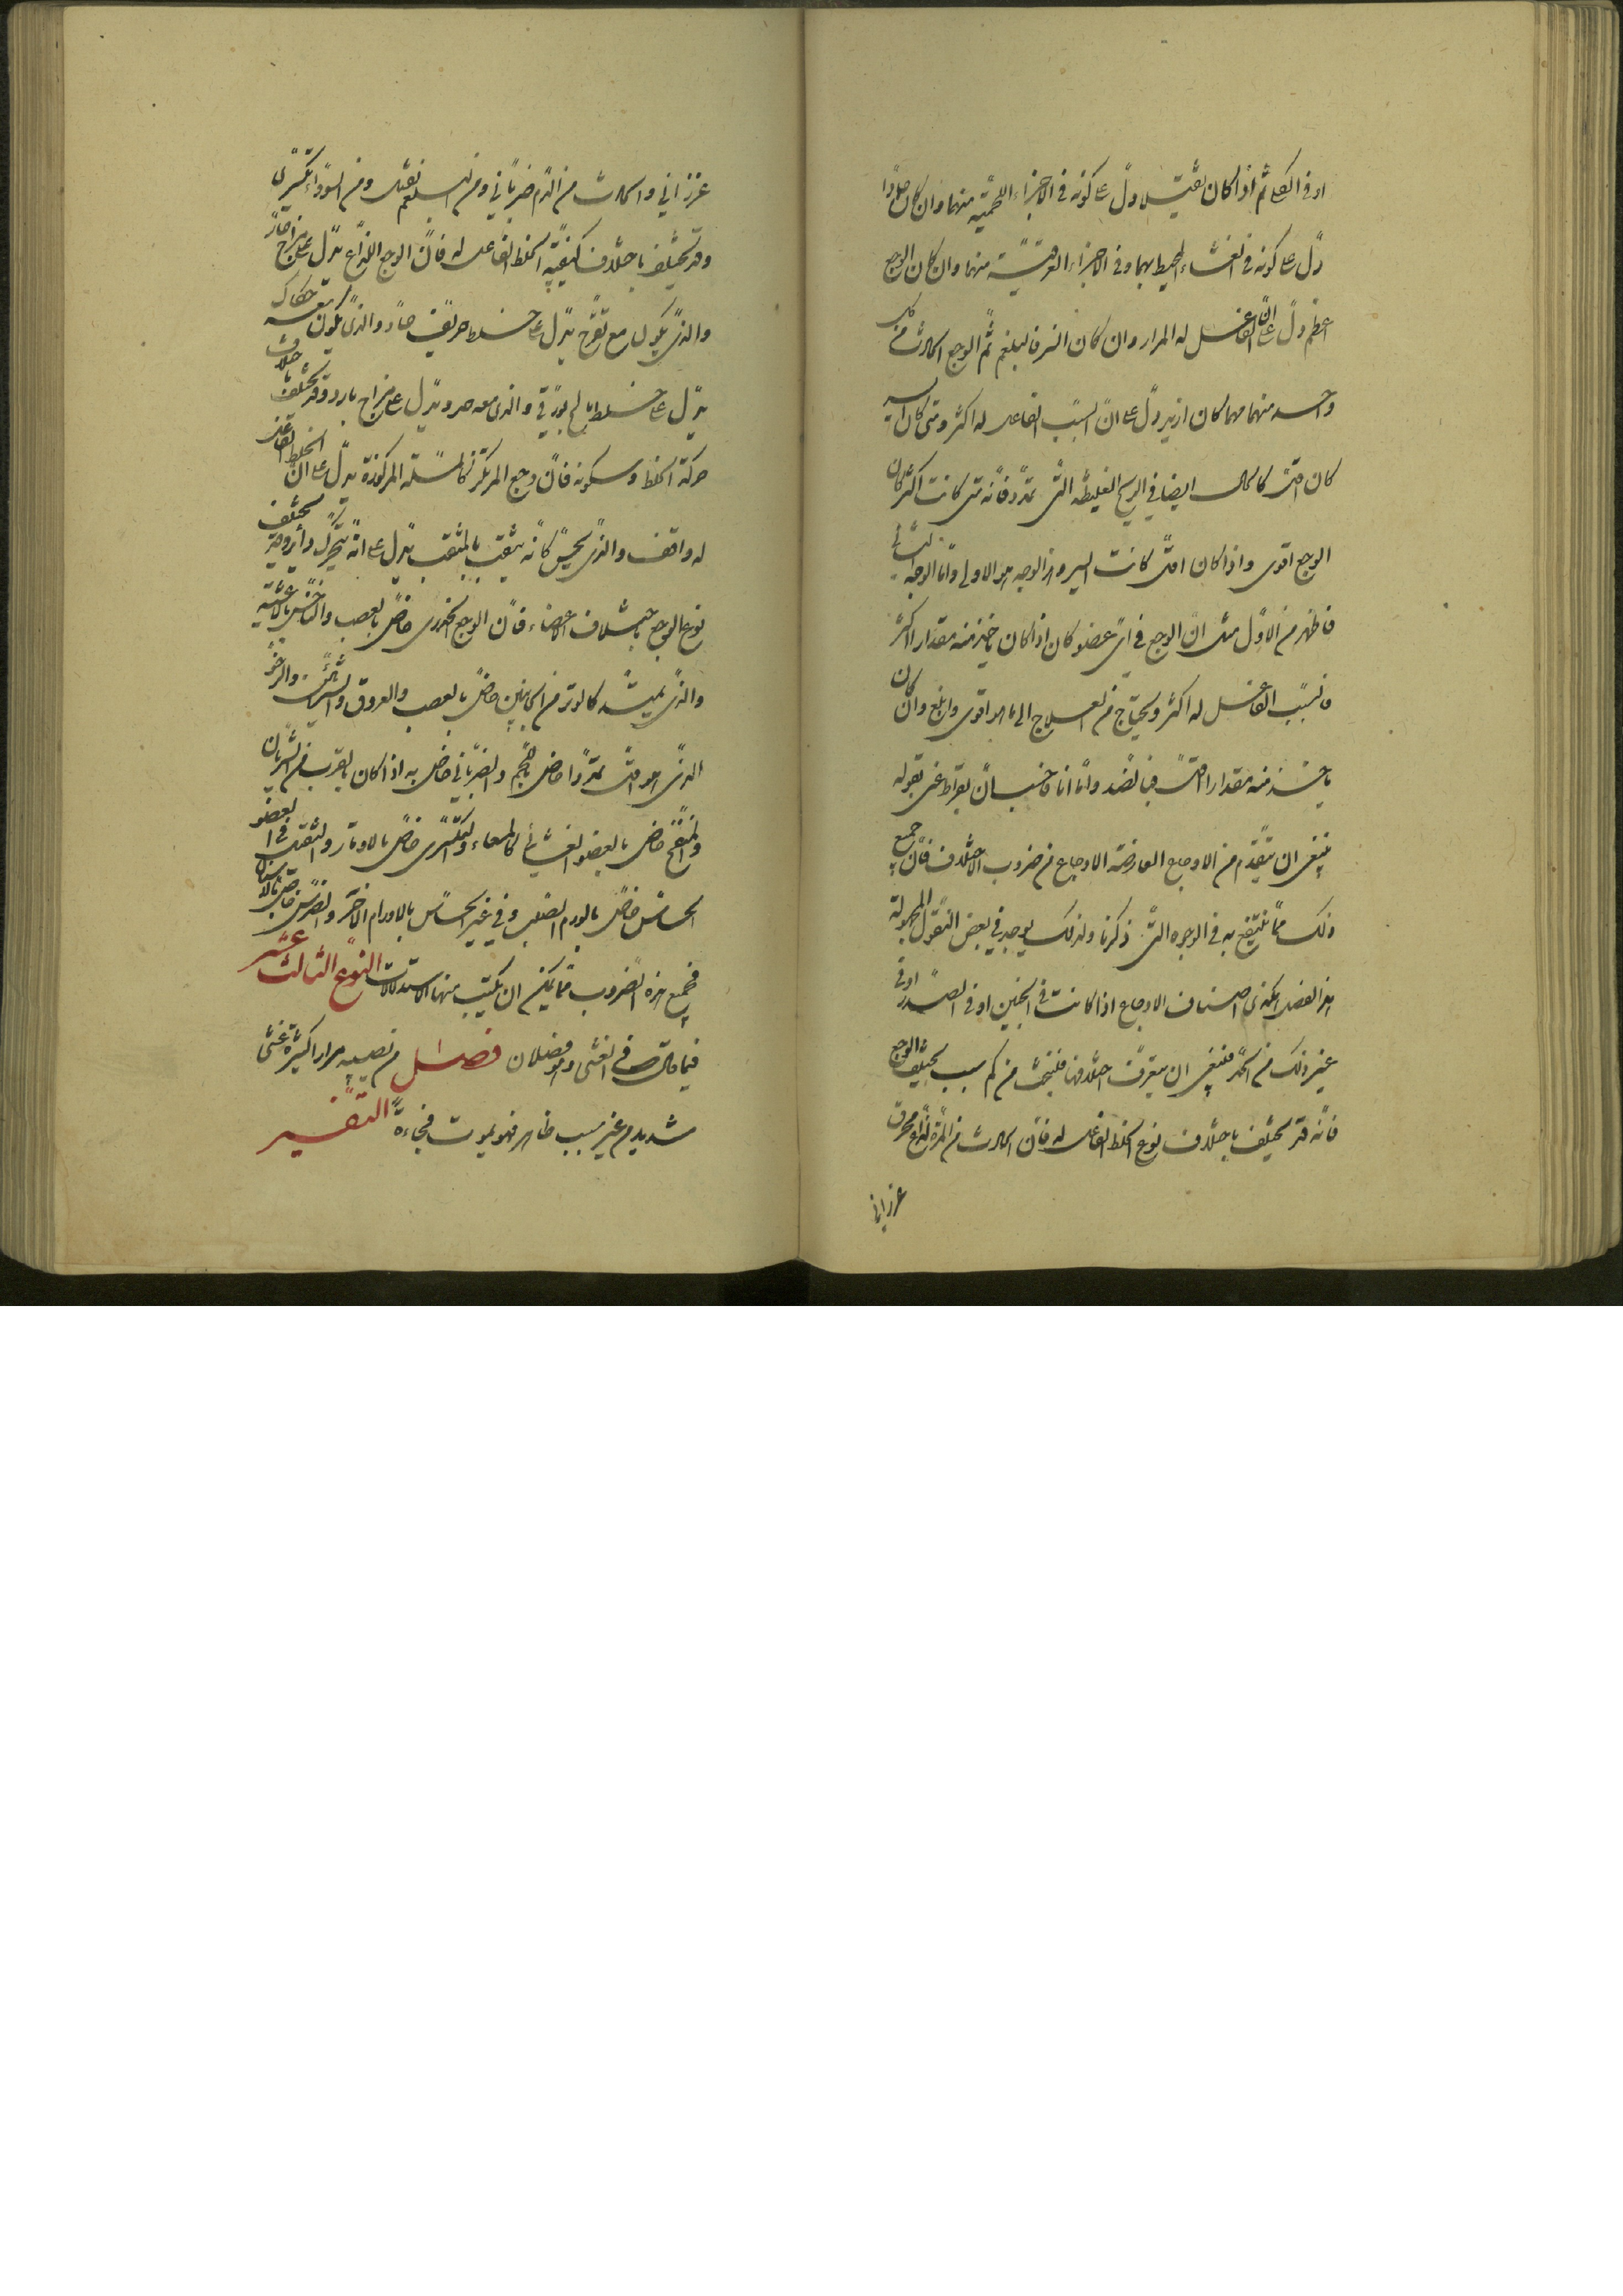 او في الكلى ثم اذا كان ثقيلا دل على كونه في الاجزاء اللحمية منهما وان كان حادا
دل على كونه في الغشاء المحيط بهما وفي الاجزاء العرقية منهما وان كان الوجع
اعظم دل على ان الفاعل له المرار وان كان انزل فالبلغم ثم الوجع الحادث من كل
واحد منهما مهما كان ازيد دل على ان السبب الفاعل له اكثر ومتى كان ايسر
كان اقل كالحال ايضا في الريح الغليظة التي تمدد فانه متى كانت اكثر كان
الوجع اقوى واذا كان اقل كانت ايسر وهذا الوجه هو الاولى واما الوجه الثاني
فاظهر من الاول مثل ان الوجع في اي عضو كان اذا كان ياخذ منه مقدارا اكثر
فالسبب الفاعل له اكثر ويحتاج من العلاج الى ما هو اقوى وابلغ وان كان
ياخذ منه مقدارا اقل فبالضد واما انا فاحسب ان بقراط عنى بقوله
ينبغي ان يتقدم من الاوجاع العارضة الاوجاع من ضروب الاختلاف فان جميع
ذلك مما ينتفع به في الوجوه التي ذكرنا ولذلك يوجد في بعض النقول المجهولة
هذا الفصل هكذى اصناف الاوجاع اذا كانت في الجنبين او في الصدر او في
غير ذلك من الحمى فينبغي ان يتعرف اختلافها فلنبحث من كم سبب يختلف الوجع
فانه قد يختلف باختلاف نوع الخلط الفاعل له فان الحادث من المرة لذاع محرق
غرزاني
غرزاني والحادث من الدم ضرباني ومن البلغم ثقيل ومن السوداء تكسيري
وقد تختلف باختلاف كيفية الخلط الفاعل له فان الوجع اللذاع يدل على مزاج حار
والذي يكون مع تقرح يدل على خلط حريف حاد والذي يكون معه حكاك
يدل على خلط مالح بورقي والذي معه صرد يدل على مزاج بارد وقد تختلف باختلاف
حركة الخلط وسكونه فان وجع المرتكز كالمسلة المركوزة يدل على ان الخلط الفاعل
له واقف والذي يحس كانه يثقب بالمثقب يدل على انه يتحرك دائرا وقد يختلف
نوع الوجع باختلاف الاعضاء فان الوجع الخدري خاص بالعصب والناخس بالاغشية
والذي يمتد كالوتر من الجانبين خاص بالعصب والعروق والشرائين والرخو
الذي هو اقل تمددا خاص باللحم والضرباني خاص به اذا كان بالقرب من الشريان
والمنفخ خاص بالعضو الغشائي كالمعاء والتكسيري خاص بالاوتار والثقل في العضو
الحساس خاص بالورم الصلب وفي غير الحساس بالاورام الاخر والضرس خاص بالاسنان
فجميع هذه الضروب مما يمكن ان يكتسب منها الاستدلالات النوع الثالث عشر
فيما قاله في الغشي وهو فصلان فصل من تصيبه مرارا كثيرة غشي
شديد من غير سبب ظاهر فهو يموت فجاءة التفسير